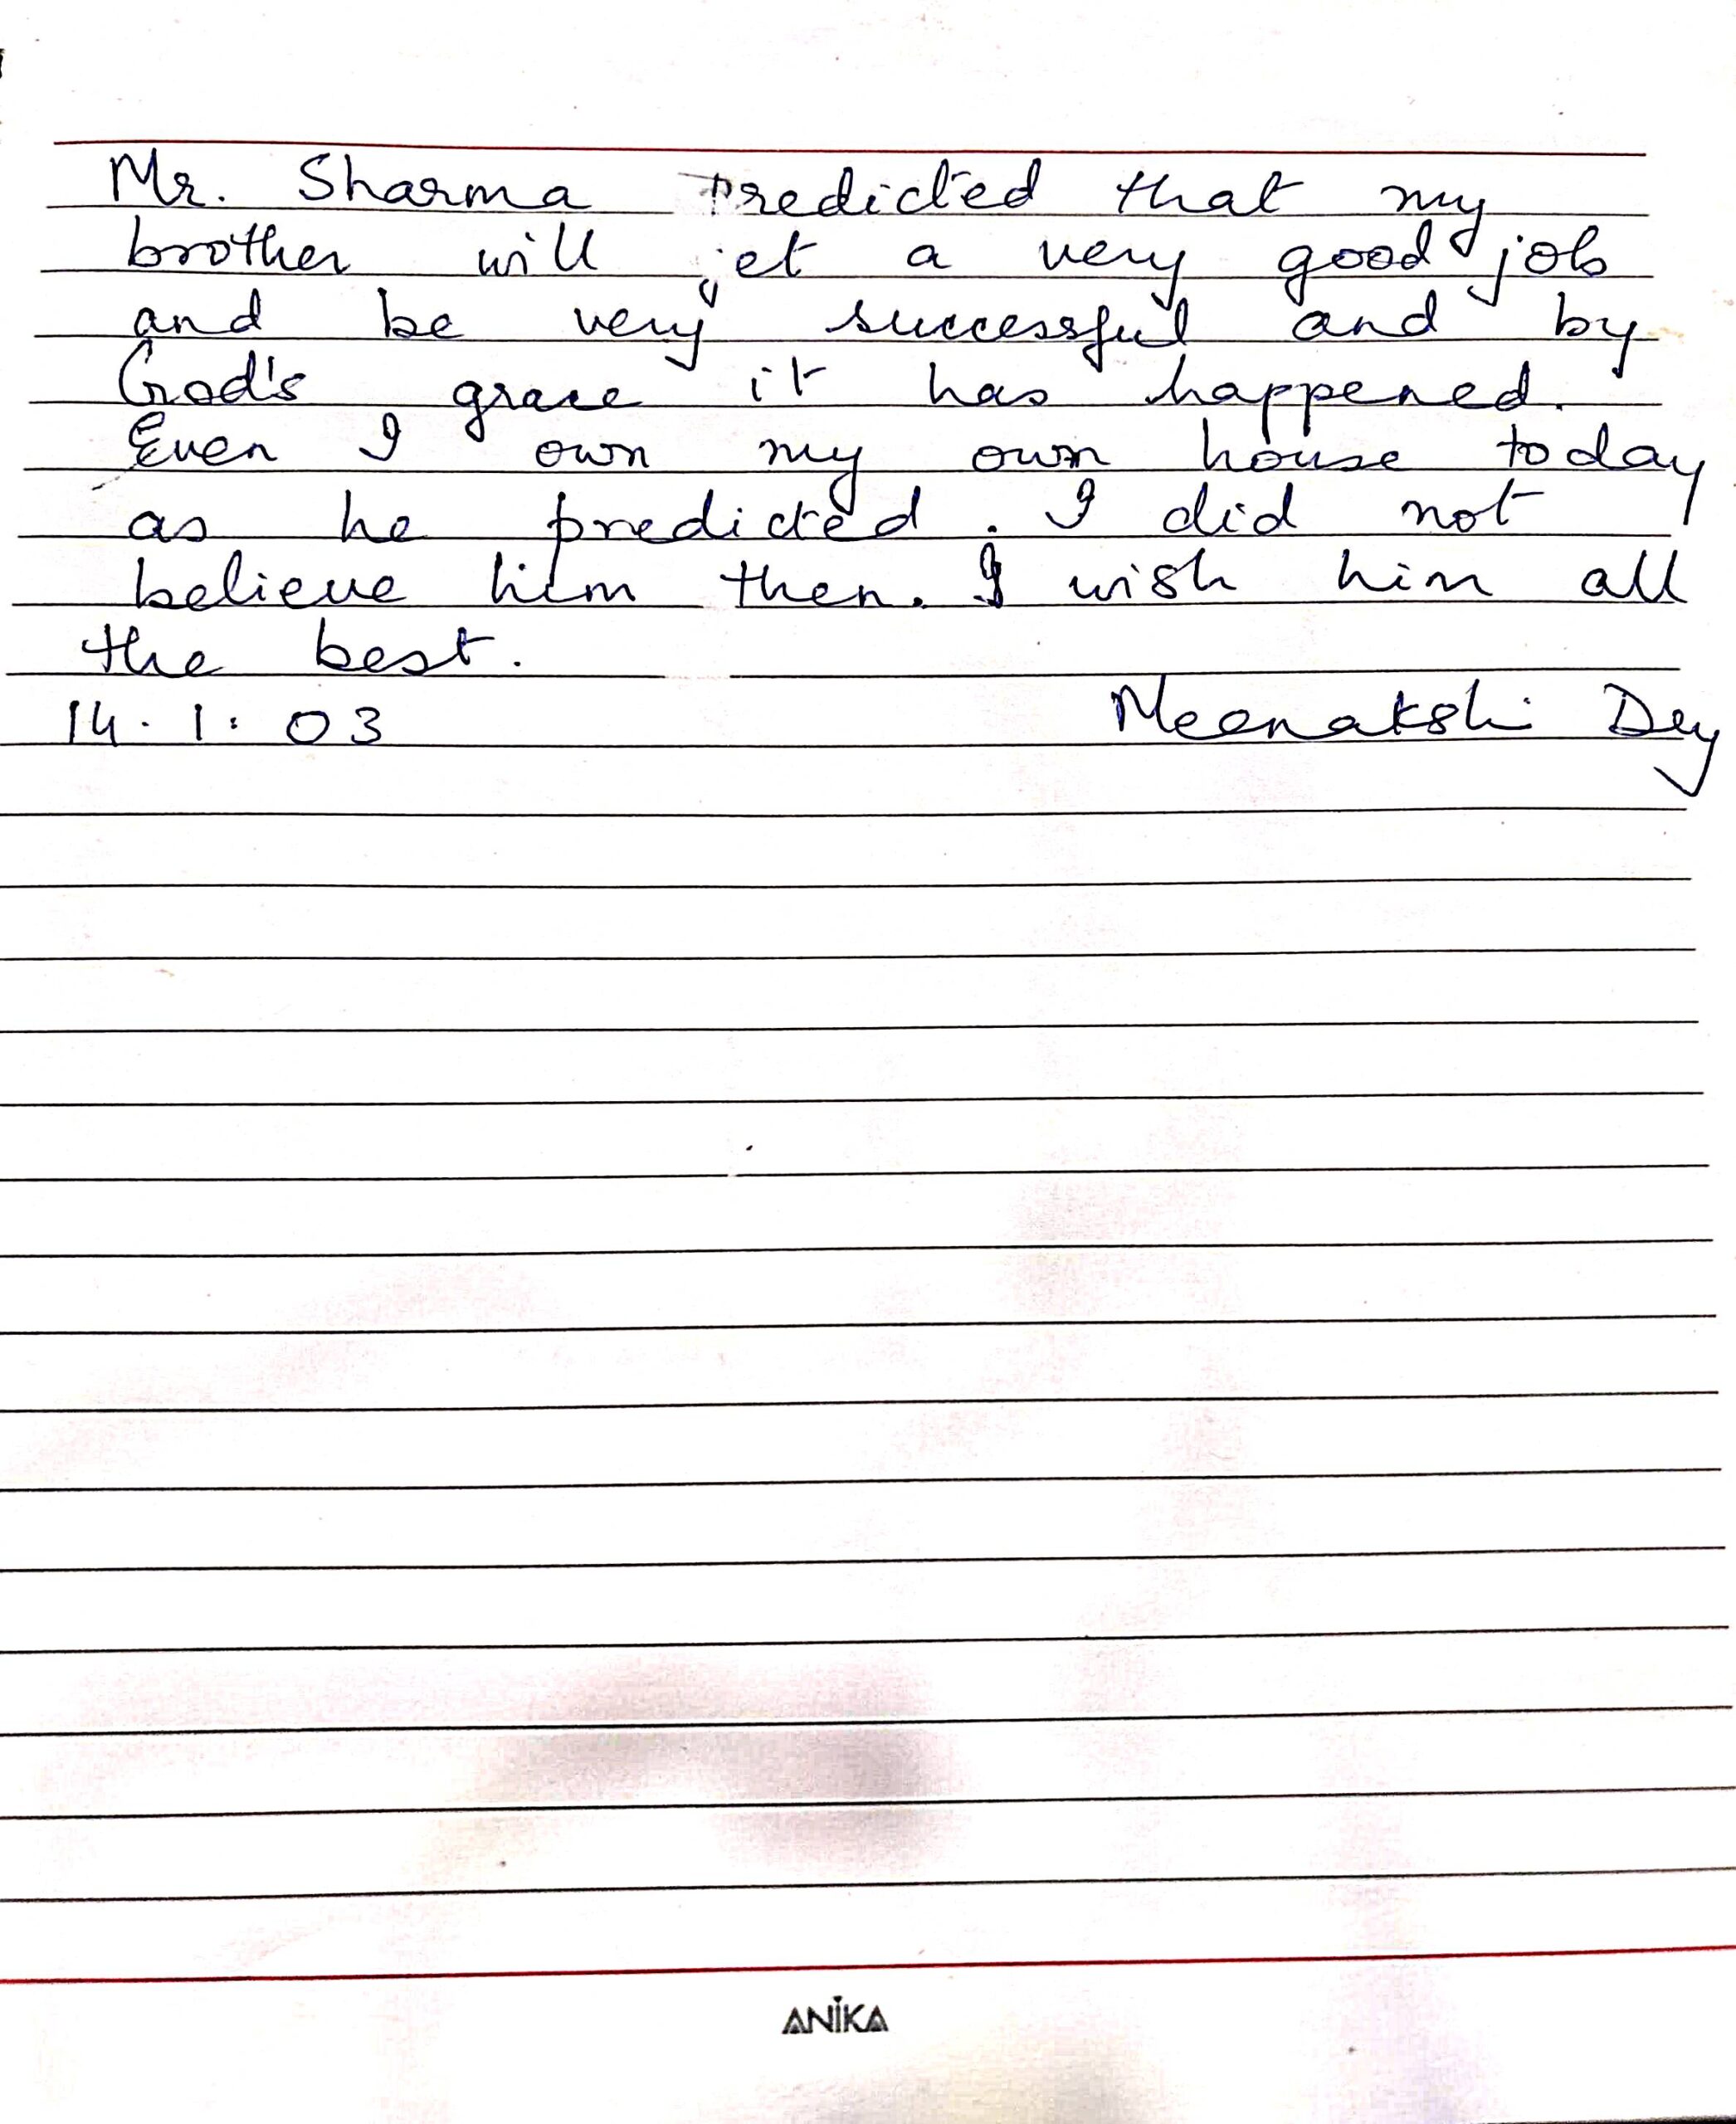 Mr. Sharma predicted that my
brother will get a very good job
and be very successful and by
God's grace it has happened.
Even I own my own house today
as he predicted. I did not
believe him then. I wish him all
the best.
14.1.03 Meenakshi Dey
ANIKA